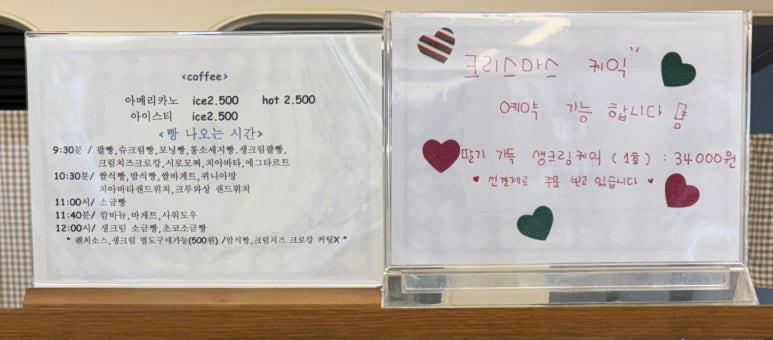 <coffee>
아메리카노 ice2.500 hot 2.500
아이스티 ice2.500
<빵 나오는 시간>
9:30분 / 팥빵,슈크림빵,모닝빵,통소세지빵,생크림팥빵,
크림치즈크로캉,시로모찌,치아바타,에그타르트
10:30분/ 쌀식빵,밤식빵,쌀바게트,퀴니아망
치아바타샌드위치,크루와상 샌드위치
11:00시/ 소금빵
11:40분/ 깜바뉴,바게트,사워도우
12:00시/ 생크림 소금빵,초코소금빵
* 랜치소스,생크림 별도구매가능(500원) /밤식빵,크림치즈 크로캉 커팅X *
크리스마스 케익
예약 가능 합니다
딸기 가득 생크림케이크 (1호) : 34000원
♥ 선결제로 주문 받고 있습니다 ♥